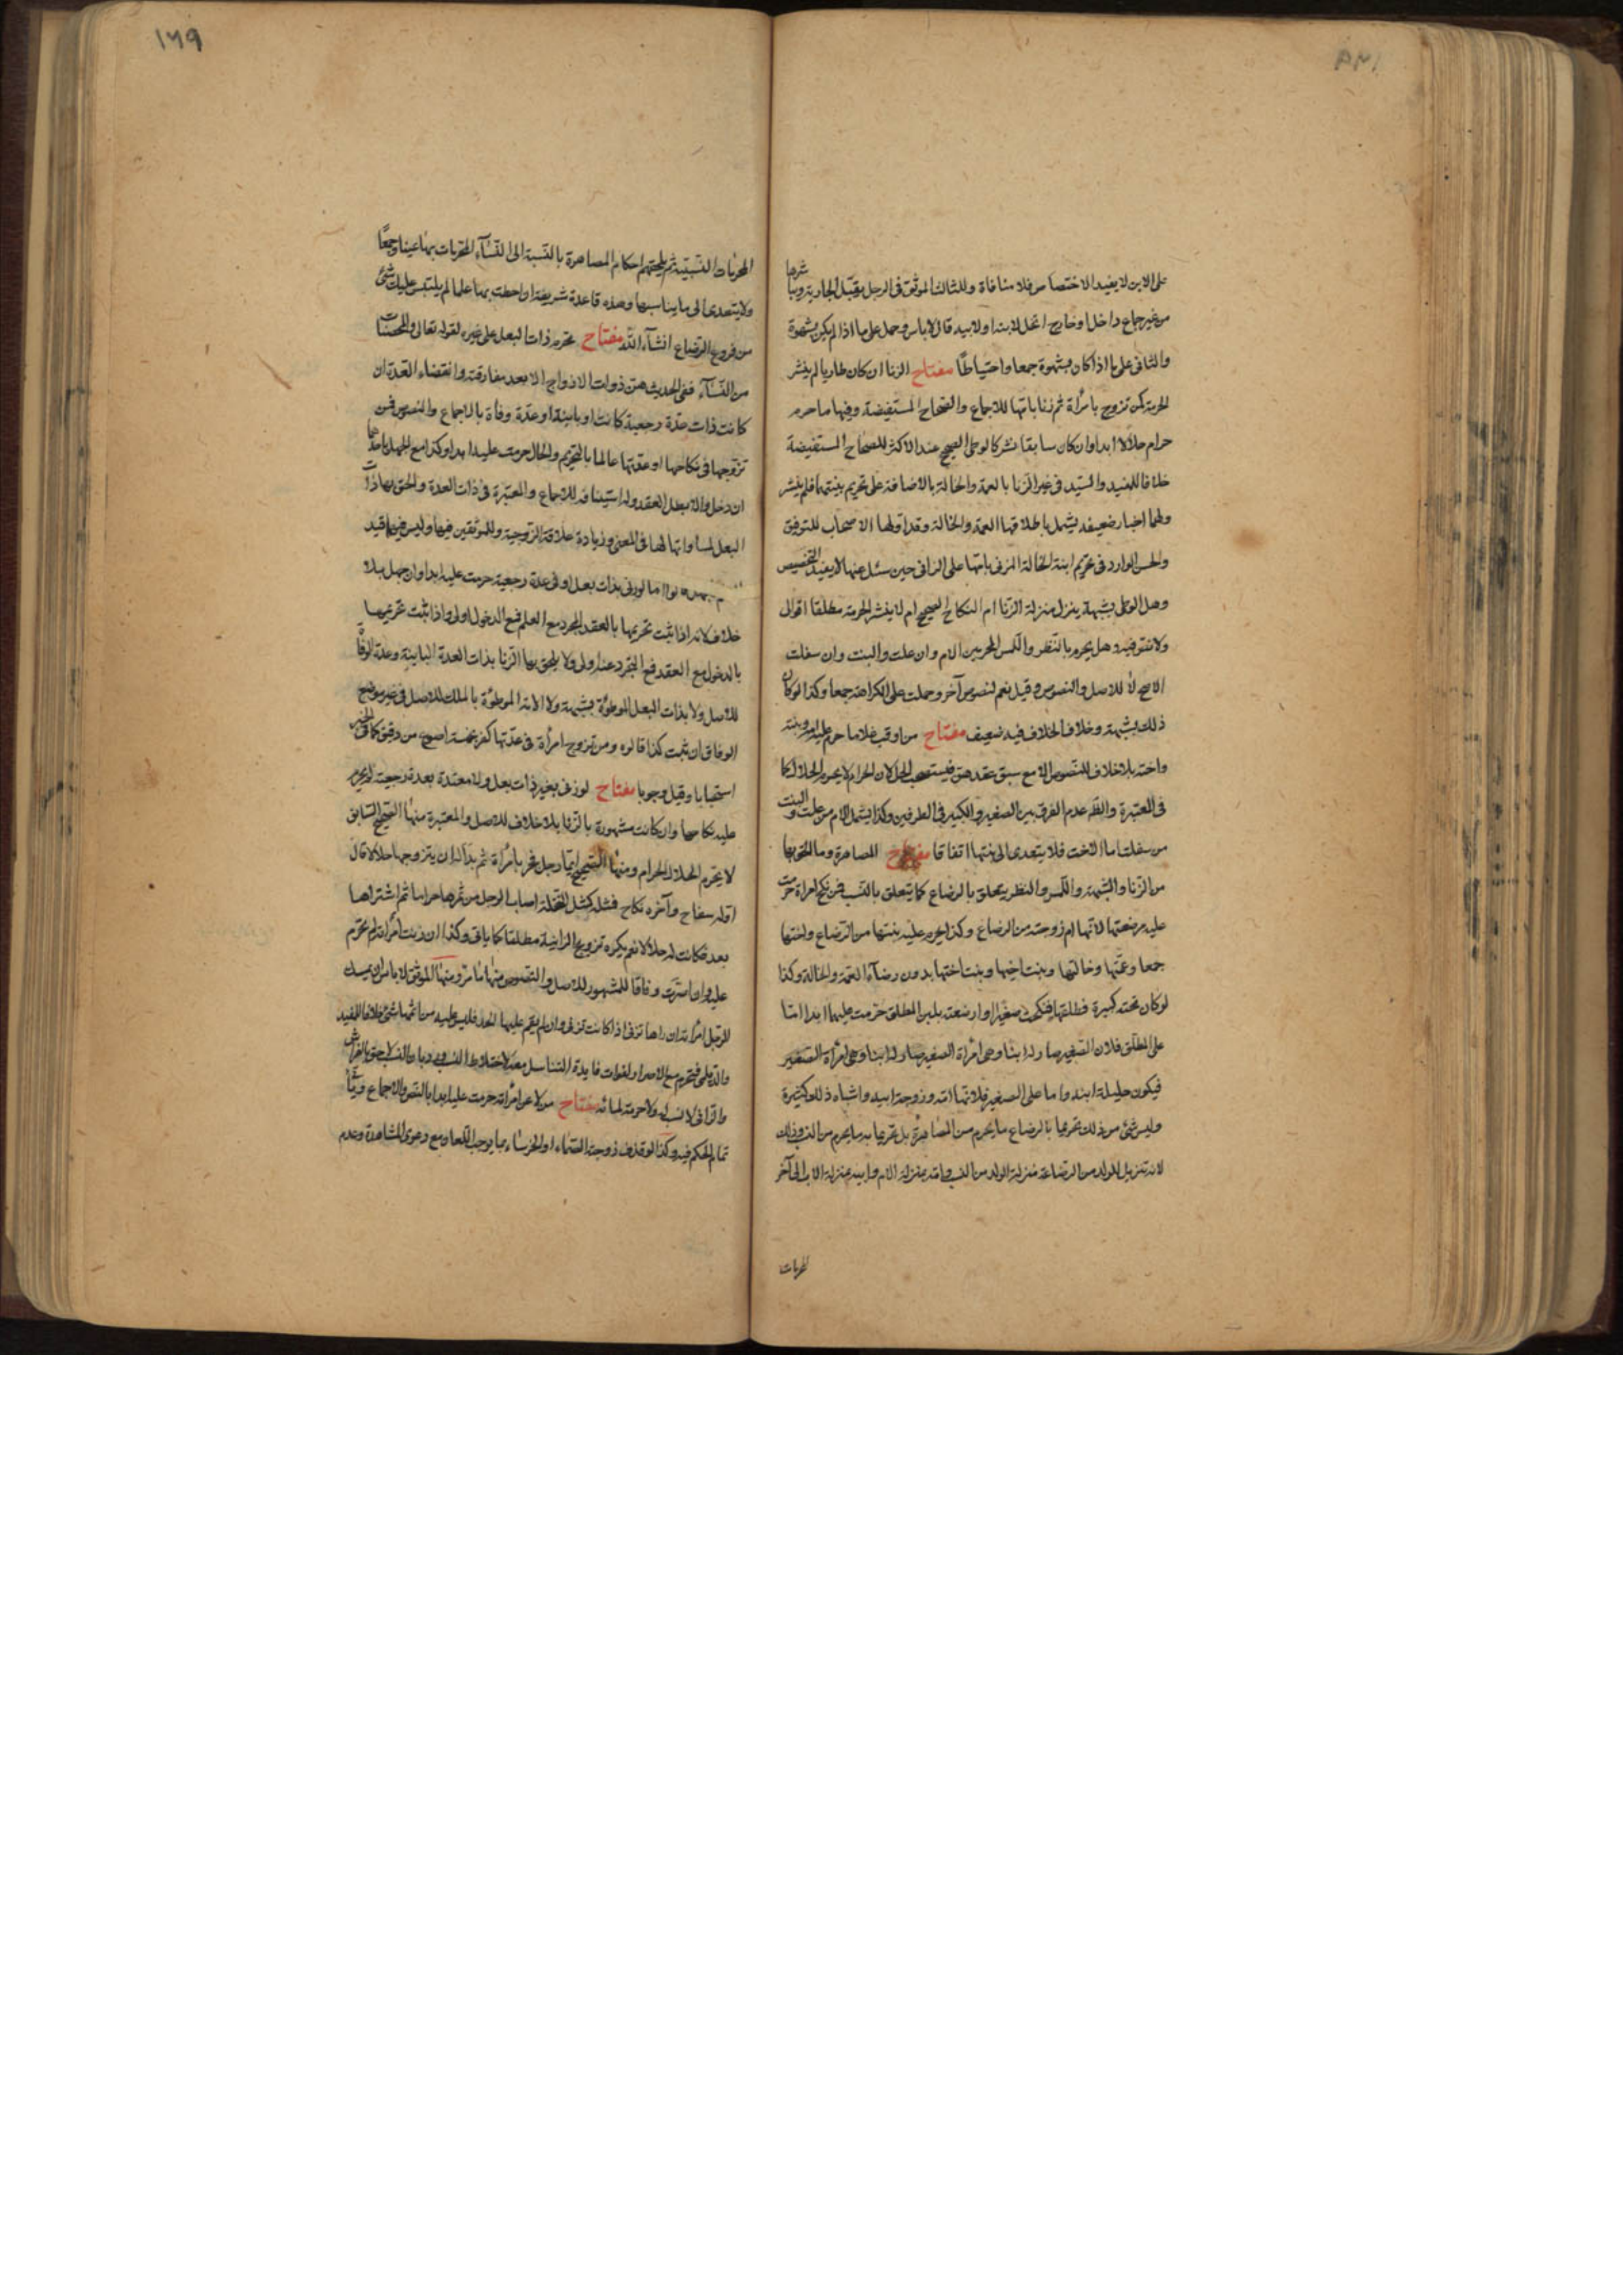 على الابن لا يفيد الاختصاص فلا منافاة وللثالث الموثق في الرجل يقبل الجارية يباشرها
من غير جماع داخل او خارج اتحل لابنه او لابيه قال لا باس وحمل على ما اذا لم يكن بشهوة
والثاني على ما اذا كان بشهوة جمعا واحتياطا مفتاح الزنا ان كان طاريا لم ينشر
الحرمة كمن تزوج بامرأة ثم زنا بامها للاجماع والصحاح المستفيضة وفيها ما حرم
حرام حلالا ابدا وان كان سابقا نشر كالوطي الصحيح عند الاكثر للصحاح المستفيضة
خلافا للمفيد والسيد في غير الزنا بالعمة والخالة بالاضافة على تحريم بنتيهما فلم ينشر
ولهما اخبار ضعيفة يشمل باطلاقها العمة والخالة وقد اولها الاصحاب للتوفيق
والحسن الوارد في تحريم ابنة الخالة المزني بامها على الزاني حين سئل عنها لا يفيد التخصيص
وهل الوطي بشبهة ينزل منزلة الزنا ام النكاح الصحيح ام لا ينشر الحرمة مطلقا اقوال
ولا نص فيه وهل يحرم بالنظر واللمس المحرمين الام وان علت والبنت وان سفلت
الاصح لا للاصل والنصوص وقيل نعم لنصوص آخر وحملت على الكراهة جمعا وكذا لو كان
ذلك بشبهة وخلاف الخلاف فيه ضعيف مفتاح من اوقب غلاما حرم عليه امه وبنته
واخته بلا خلاف للنصوص الا مع سبق عقدهن فيستصحب الحل لان الحرام لا يحرم الحلال كما
في المعتبرة والظ عدم الفرق بين الصغير والكبير في الطرفين وكذا يشمل الام من علت والبنت
من سفلت اما الاخت فلا يتعدى الى بنتها اتفاقا مفتاح المصاهرة وما الحق بها
من الزنا والشبهة واللمس والنظر يتعلق بالرضاع كما يتعلق بالنسب فمن نكح امراة حرمت
عليه مرضعتها لانها ام زوجته من الرضاع وكذا يحرم عليه بنتها من الرضاع واختها
جمعا وعمتها وخالتها وبنت اخيها وبنت اختها بدون رضاء العمة والخالة وكذا
لو كان تحته كبيرة فطلقها فنكحت صغيرا وارضعته بلبن المطلق حرمت عليهما ابدا اما
على المطلق فلان الصغير صار له ابنا وهي امرأة الصغير صار له ابنا وهي امرأة الصغير
فيكون حليلة ابنه واما على الصغير فلانها امه وزوجة ابيه واشباه ذلك كثيرة
وليس شئ من ذلك تحريما بالرضاع ما يحرم من المصاهرة بل تحريما به ما يحرم من النسب وذلك
لانه تنزيل للولد من الرضاعة منزلة الولد من النسب وامه بمنزلة الام وابيه بمنزلة الاب الى آخر
المحرمات
١٦٩
المحرمات النسبية ثم يلحقهم احكام المصاهرة بالنسبة الى النساء المحرمات بها عينا وجمعا
ولا يتعدى الى ما يناسبها وهذه قاعدة شريفة ان احطت بها علما لم يلتبس عليك شئ
من فروع الرضاع انشاء الله مفتاح تحرم ذات البعل على غيره لقوله تعالى والمحصنات
من النساء ففي الحديث هن ذوات الازواج الا بعد مفارقته وانقضاء العدة ان
كانت ذات عدة رجعية كانت او باينة او عدة وفاة بالاجماع والنصوص فمن
تزوجها في نكاحها او عدتها عالما بالتحريم والحال حرمت عليه ابدا وكذا مع الجهل باحدهما
ان دخل والا بطل العقد وله استينافه للاجماع والمعتبرة في ذات العدة والحق بها ذات
البعل لمساواتها لها في المعنى وزيادة علاقة الزوجية وللموثقين فيها وليس فيهما قيد
اما لو زنى بذات بعل او في عدة رجعية حرمت عليه ابدا وان جهل بلا
خلاف لانه اذا ثبت تحريمها بالعقد المجرد مع العلم فمع الدخول اولى واذا ثبت تحريمها
بالدخول مع العقد فمع التجرد عنه اولى ولا يلحق بها الزنا بذات العدة الباينة وعدة الوفاة
للاصل ولا بذات البعل الموطوئة بشبهة ولا الامة الموطوئة بالملك للاصل في غير موضع
الوفاق ان ثبت كذا قالوه ومن تزوج امرأة في عدتها كفر بخمسة اصوع من دقيق كما في الخبر
استحبابا وقيل وجوبا مفتاح لو زنى بغير ذات بعل ولا معتدة بعدة رجعية لم يحرم
عليه نكاحها وان كانت مشهورة بالزنا بلا خلاف للاصل والمعتبرة منها الصحيح السابق
لا يحرم الحلال الحرام ومنها الصحيح ايما رجل فجر بامرأة ثم بدا له ان يتزوجها حلالا قال
اوله سفاح وآخره نكاح فمثله كمثل النخلة اصاب الرجل من ثمرها حراما ثم اشتراها
بعد فكانت له حلالا نعم يكره تزويج الزانية مطلقا كما ياتي وكذا ان زنت امرأته لم تحرم
عليه وان اصرت وفاقا للمشهور للاصل والنصوص منها ما مر ومنها الموثق لا باس ان يمسك
الرجل امرأته ان راها تزني اذا كانت تزني وان لم يقم عليها الحد فليس عليه من اثمها شئ خلافا للمفيد
والديلمي فيحرم مع الاصرار لفوات فايدة التناسل معه لاختلاط النسب ورد بان النسب لاحق بالفراش
والزاني لا نسب له ولا حرمة لمائه مفتاح من لاعن امرأته حرمت عليه ابدا بالنص والاجماع وياتي
تمام الحكم فيه وكذا لو قذف زوجته الصماء او الخرساء بما يوجب اللعان مع دعوى المشاهدة وعدم